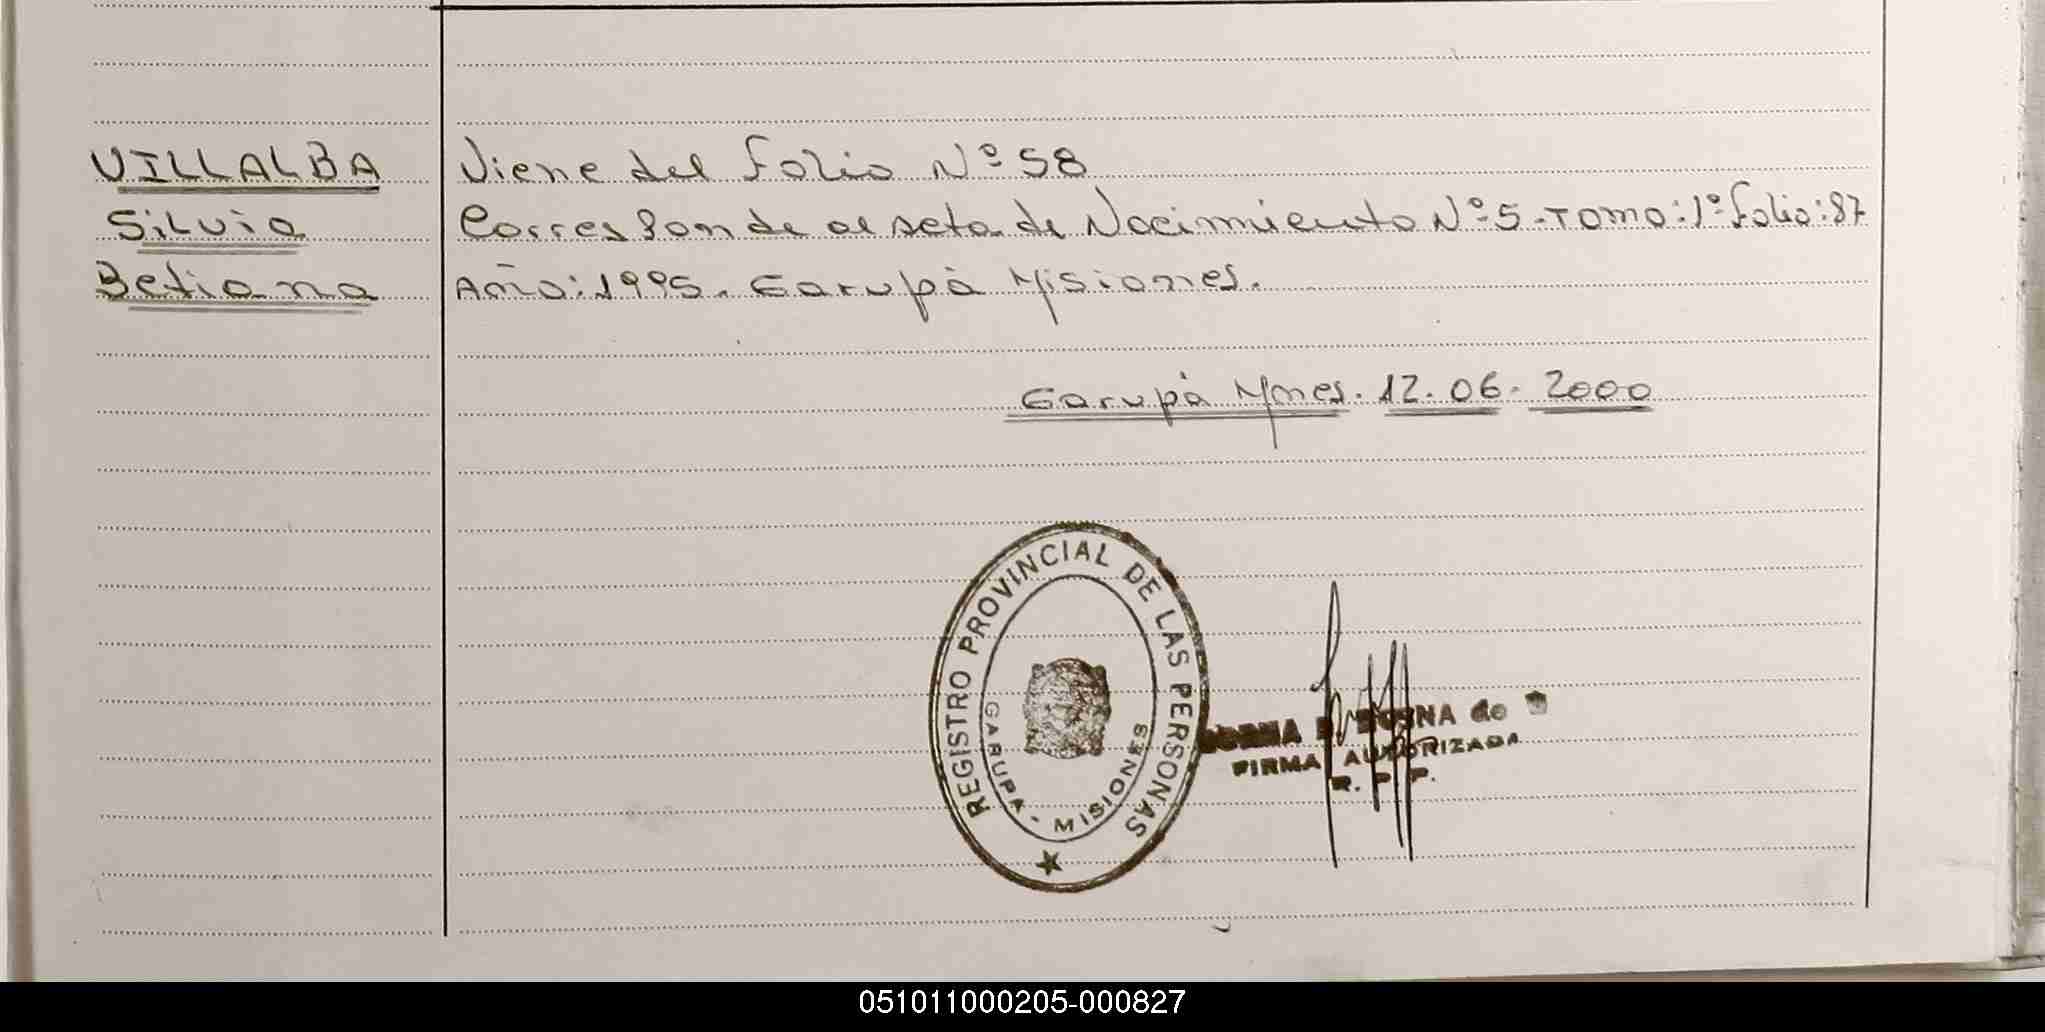 VILLALBA
Silvia
Betiana
Viene del Folio Nº 58
Corresponde al acta de Nacimiento Nº 5 - Tomo: 1º Folio: 87
Año: 1995. Garupá Misiones.
Garupá Mnes. 12. 06 - 2000
REGISTRO PROVINCIAL DE LAS PERSONAS
GARUPA - MISIONES
de
FIRMA AUTORIZADA
R. P. P.
051011000205-000827